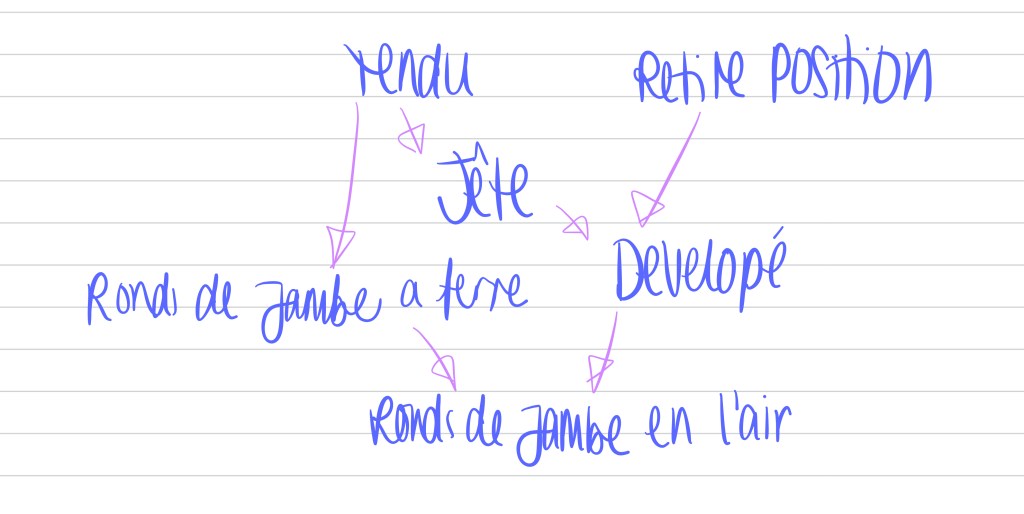 Tendu
Retire Position
Jête
Developé
Ronds de jambe a terre
Ronds de jambe en l'air